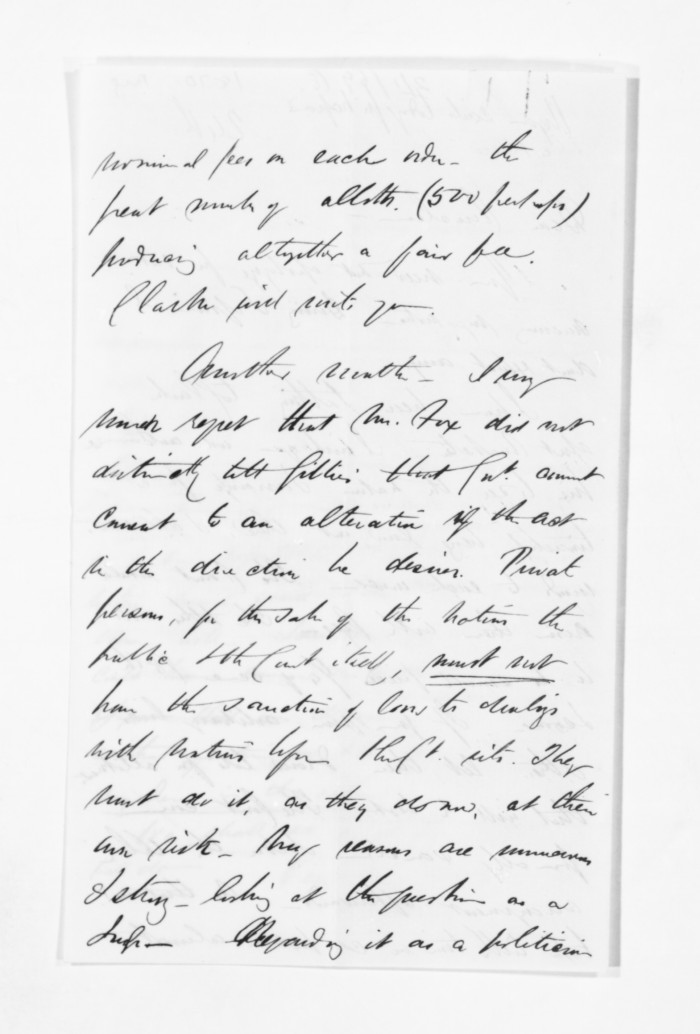 nominal fees on each order - the
great number of allotts. (500 perhaps)
producing altogether a fair fee.
Clarke will write you.
Another matter - I very
much regret that Mr. Fox did not
distinctly tell Gillies that Govt. cannot
consent to an alteration of the act
in the direction he desires. Private
persons, for the sake of the natives the
public & the Court itself, must not
have the sanction of law to dealings
with natives before the Ct. sits. They
must do it, as they do now, at their
own risk - my reasons are numerous
& strong - looking at the question as a
Judge - Regarding it as a politician